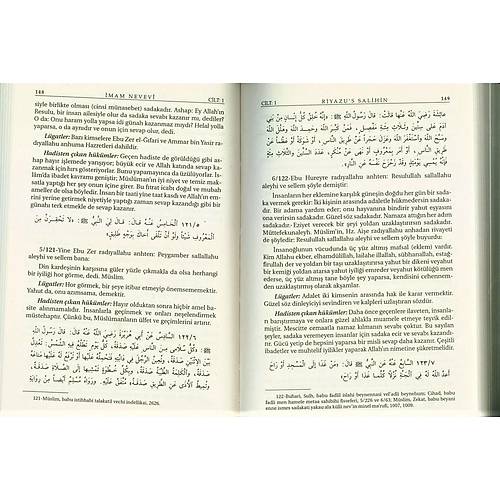 148
İMAM NEVEVÎ
CİLT: 1
şiyle birlikte olması (cinsî münasebet) sadakadır. Ashap: Ey Allah'ın
Resulu, bir insan ailesiyle olur da sadaka sevabı kazanır mı, dediler?
O da: Onu haram yolla yapsa idi günah kazanmaz mıydı? Helal yolla
yaparsa, o da aynıdır ve onun için sevap olur, dedi.
Lügatler: Bazı kimselere Ebu Zer el-Gıfari ve Ammar bin Yasir ra-
dıyallahu anhuma Hazretleri dahildir.
Hadisten çıkan hükümler: Geçen hadiste de görüldüğü gibi as-
hap hayır işlemede yarışıyor; büyük ecir ve Allah katında sevap ka-
zanmak için hırs gösteriyorlar. Bunu yapamayınca da üzülüyorlar. İs-
lâm'da ibadet kavramı geniştir; Müslümanın iyi niyet ve temiz mak-
satla yaptığı her şey onun içine girer. Bu fıtrat icabı doğal ve mubah
ameller de olsa böyledir. İnsan bir taatı yaparsa yahut Allah'ın em-
rini yerine getirmek niyetiyle yaptığı zaman sevap kazandığı gibi bir
günahı terk etmekle de sevap kazanır.
١٢١/٥ الْخَامِسُ عَنْهُ قَالَ: قَالَ لِي النَّبِيُّ ﷺ: لَا تَحْقِرَنَّ مِنَ
الْمَعْرُوفِ شَيْئًا وَلَوْ أَنْ تَلْقَى أَخَاكَ بِوَجْهٍ طَلِيقٍ»
5/121-Yine Ebu Zer radıyallahu anhten: Peygamber sallallahu
aleyhi ve sellem bana:
Din kardeşinin karşısına güler yüzle çıkmakla da olsa herhangi
bir iyiliği hor görme, dedi. Müslim.
Lügatler: Hor görmek, bir şeye itibar etmeyip önemsememektir.
Yahut da, onu azımsama, demektir.
Hadisten çıkan hükümler: Hayır olduktan sonra hiçbir amel ba-
site alınmamalıdır. İnsanlarla geçinmek ve onları neşelendirmek
müstehaptır. Çünkü bu, Müslümanların ülfet ve geçimlerini artırır.
١٢٢/٦ السَّادِسُ عَنْ أَبِي هُرَيْرَةَ رَضِيَ اللهُ عَنْهُ قَالَ: قَالَ رَسُولُ اللهِ
ﷺ: «كُلُّ سُلَامَى مِنَ النَّاسِ عَلَيْهِ صَدَقَةٌ، كُلَّ يَوْمٍ تَطْلُعُ فِيهِ الشَّمْسُ: تَعْدِلُ
بَيْنَ الِاثْنَيْنِ صَدَقَةٌ، وَتُعِينُ الرَّجُلَ فِي دَابَّتِهِ فَتَحْمِلُهُ عَلَيْهَا أَوْ تَرْفَعُ لَهُ عَلَيْهَا مَتَاعَهُ
صَدَقَةٌ، وَالْكَلِمَةُ الطَّيِّبَةُ صَدَقَةٌ، وَبِكُلِّ خُطْوَةٍ تَمْشِيهَا إِلَى الصَّلَاةِ صَدَقَةٌ،
وَتُمِيطُ الْأَذَى عَنِ الطَّرِيقِ صَدَقَةٌ» مُتَّفَقٌ عَلَيْهِ. وَرَوَاهُ مُسْلِمٌ أَيْضًا مِنْ رِوَايَةِ
121-Müslim, babu istihbabi talakati vechi indellikai, 2626.
CİLT: 1
RİYAZU'S SALİHİN
149
عَائِشَةَ رَضِيَ اللهُ عَنْهَا قَالَتْ: قَالَ رَسُولُ اللهِ ﷺ: «إِنَّهُ خُلِقَ كُلُّ إِنْسَانٍ مِنْ بَنِي
آدَمَ عَلَى سِتِّينَ وَثَلَاثِمِائَةِ مَفْصِلٍ، فَمَنْ كَبَّرَ اللهَ، وَحَمِدَ اللهَ، وَهَلَّلَ اللهَ،
وَسَبَّحَ اللهَ، وَاسْتَغْفَرَ اللهَ، وَعَزَلَ حَجَرًا عَنْ طَرِيقِ النَّاسِ، أَوْ شَوْكَةً أَوْ عَظْمًا عَنْ
طَرِيقِ النَّاسِ، أَوْ أَمَرَ بِمَعْرُوفٍ أَوْ نَهَى عَنْ مُنْكَرٍ، عَدَدَ السِّتِّينَ وَالثَّلَاثِمِائَةِ
فَإِنَّهُ يُمْسِي يَوْمَئِذٍ وَقَدْ زَحْزَحَ نَفْسَهُ عَنِ النَّارِ».
6/122-Ebu Hureyre radıyallahu anhten: Resulullah sallallahu
aleyhi ve sellem şöyle demiştir:
İnsanların her eklemine karşılık güneşin doğduğu her gün bir sada-
ka vermek gerekir: İki kişinin arasında adaletle hükmedersin sadaka-
dır. Bir adama yardım eder; onu hayvanına bindirir yahut eşyasını
ona verirsin sadakadır. Güzel söz sadakadır. Namaza attığın her adım
sadakadır.- Eziyet verecek bir şeyi yoldan uzaklaştırırsın sadakadır.
Müttefekunaleyh, Müslim'in, Hz. Aişe radıyallahu anhadan rivayeti
de şöyledir; Resulullah sallallahu aleyhi ve sellem şöyle buyurdu:
İnsanoğlunun vücudunda üç yüz altmış mafsal (eklem) vardır.
Kim Allahu ekber, elhamdülillah, lailahe illallah, sübhanallah, estağ-
firullah der ve yoldan bir taşı uzaklaştırırsa yahut bir dikeni veya bir
kemiği yoldan atarsa yahut iyiliği emreder veyahut kötülüğü men
ederse, üç yüz altmış türe böyle şey yaparsa, o gün kendini cehennem-
den uzaklaştırmış olarak akşamlar.
Lügatler: Adalet iki kimsenin arasında hak ile karar vermektir.
Güzel söz dinleyicilerini sevindiren ve kalpleri uzlaştıran sözdür.
Hadisten çıkan hükümler: Daha önce geçenlere ilaveten, insanla-
rın barıştırılması ve onlara güzel ahlakla muamele etmeye teşvik edil-
miştir. Mescitte cemaatla namaz kılmanın sevabı çoktur. Bu sayılan
şeyler, sadaka veremeyen insanlar için sadaka ecir ve sevabı kazandı-
rır. Gücü yetip de hepsini yaparsa bir çok hayrı toplamış olur. Çeşitli
ibadetler ve muhtelif iyilikler yaparak Allah'ın nimetine şükretmelidir.
١٢٣/٧ السَّابِعُ عَنْهُ عَنِ النَّبِيِّ ﷺ قَالَ: «مَنْ غَدَا إِلَى الْمَسْجِدِ أَوْ رَاحَ
أَعَدَّ اللهُ لَهُ فِي الْجَنَّةِ نُزُلًا كُلَّمَا غَدَا أَوْ رَاحَ»
122-Buhari, Sulh, babu fadlil islahi beynennasi vel'adli beynehum; Cihad, babu
fadli men hamele metaa sahibihi fisseferi, 5/226 ve 6/63; Müslim, Zekat, babu beyani
enne ismes sadakati yakau ala külli nev'in minel ma'rufi, 1007, 1009.